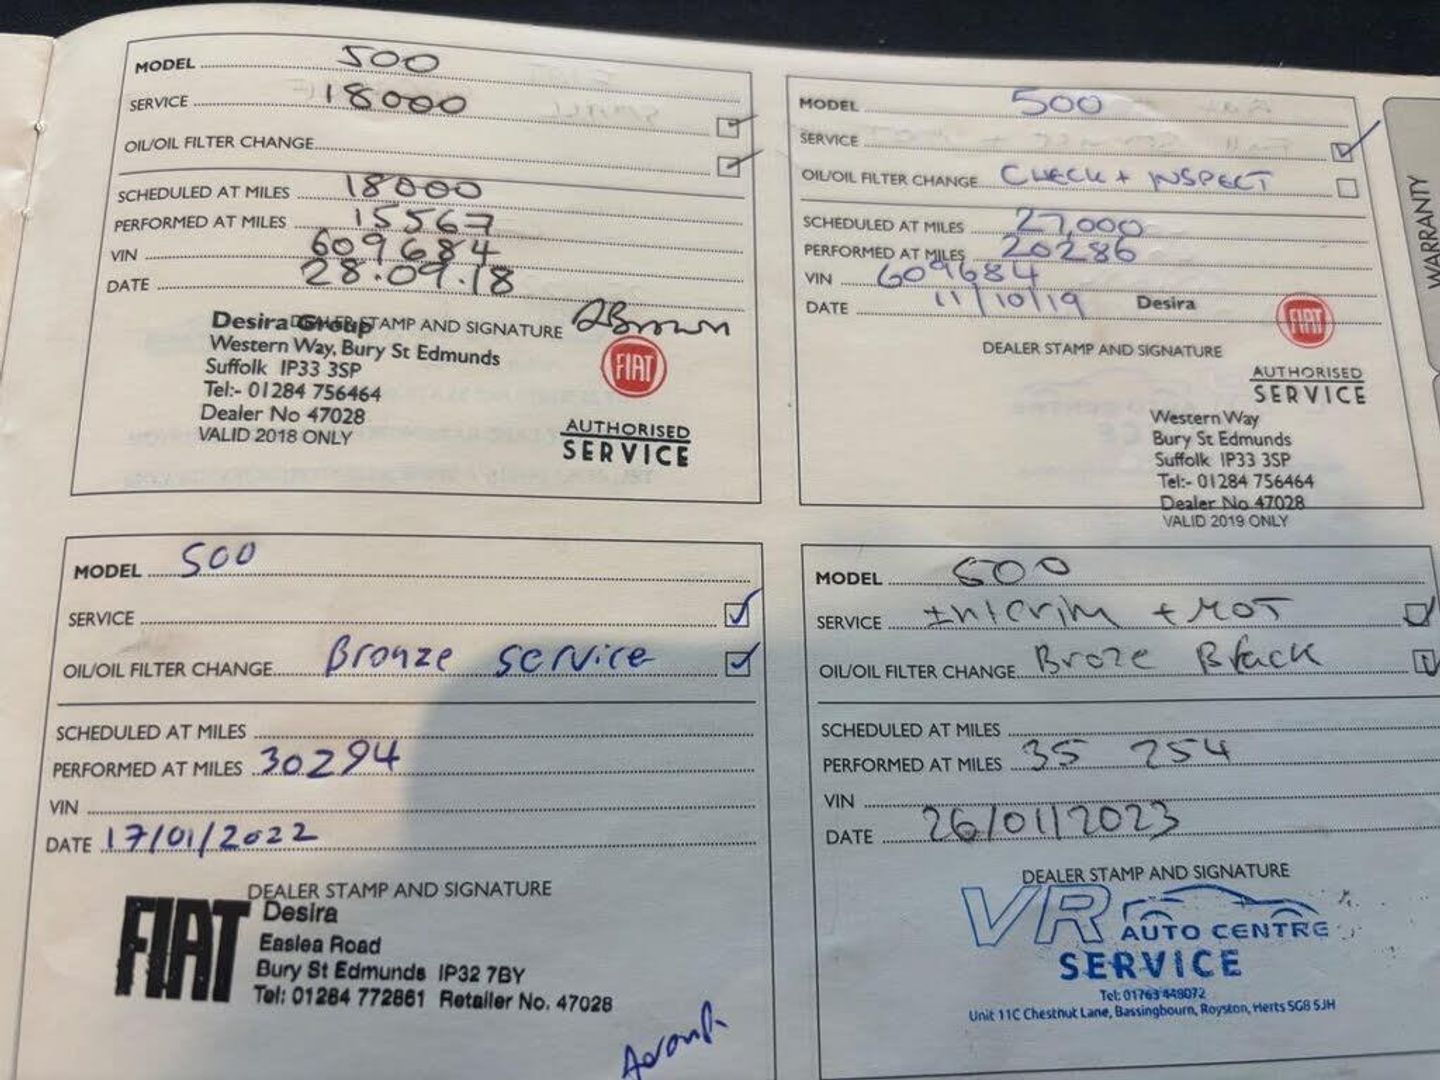 MODEL 500
SERVICE 18000
OIL/OIL FILTER CHANGE
SCHEDULED AT MILES 18000
PERFORMED AT MILES 15567
VIN 609684
DATE 28.09.18
DEALER STAMP AND SIGNATURE ABrown
Desira Group
Western Way, Bury St Edmunds
Suffolk IP33 3SP
Tel:- 01284 756464
Dealer No 47028
VALID 2018 ONLY
FIAT
AUTHORISED
SERVICE
MODEL 500
SERVICE
OIL/OIL FILTER CHANGE CHECK + INSPECT
SCHEDULED AT MILES 27,000
PERFORMED AT MILES 20286
VIN 609684
DATE 11/10/19 Desira
DEALER STAMP AND SIGNATURE
FIAT
AUTHORISED
SERVICE
Western Way
Bury St Edmunds
Suffolk IP33 3SP
Tel:- 01284 756464
Dealer No 47028
VALID 2019 ONLY
WARRANTY
MODEL 500
SERVICE
OIL/OIL FILTER CHANGE Bronze service
SCHEDULED AT MILES
PERFORMED AT MILES 30294
VIN
DATE 17/01/2022
DEALER STAMP AND SIGNATURE
FIAT
Desira
Easlea Road
Bury St Edmunds IP32 7BY
Tel: 01284 772861 Retailer No. 47028
MODEL 500
SERVICE Interim + MOT
OIL/OIL FILTER CHANGE Broze Black
SCHEDULED AT MILES
PERFORMED AT MILES 35 254
VIN
DATE 26/01/2023
DEALER STAMP AND SIGNATURE
VR
AUTO CENTRE
SERVICE
Tel: 01763 448072
Unit 11C Chestnut Lane, Bassingbourn, Royston, Herts SG8 5JH